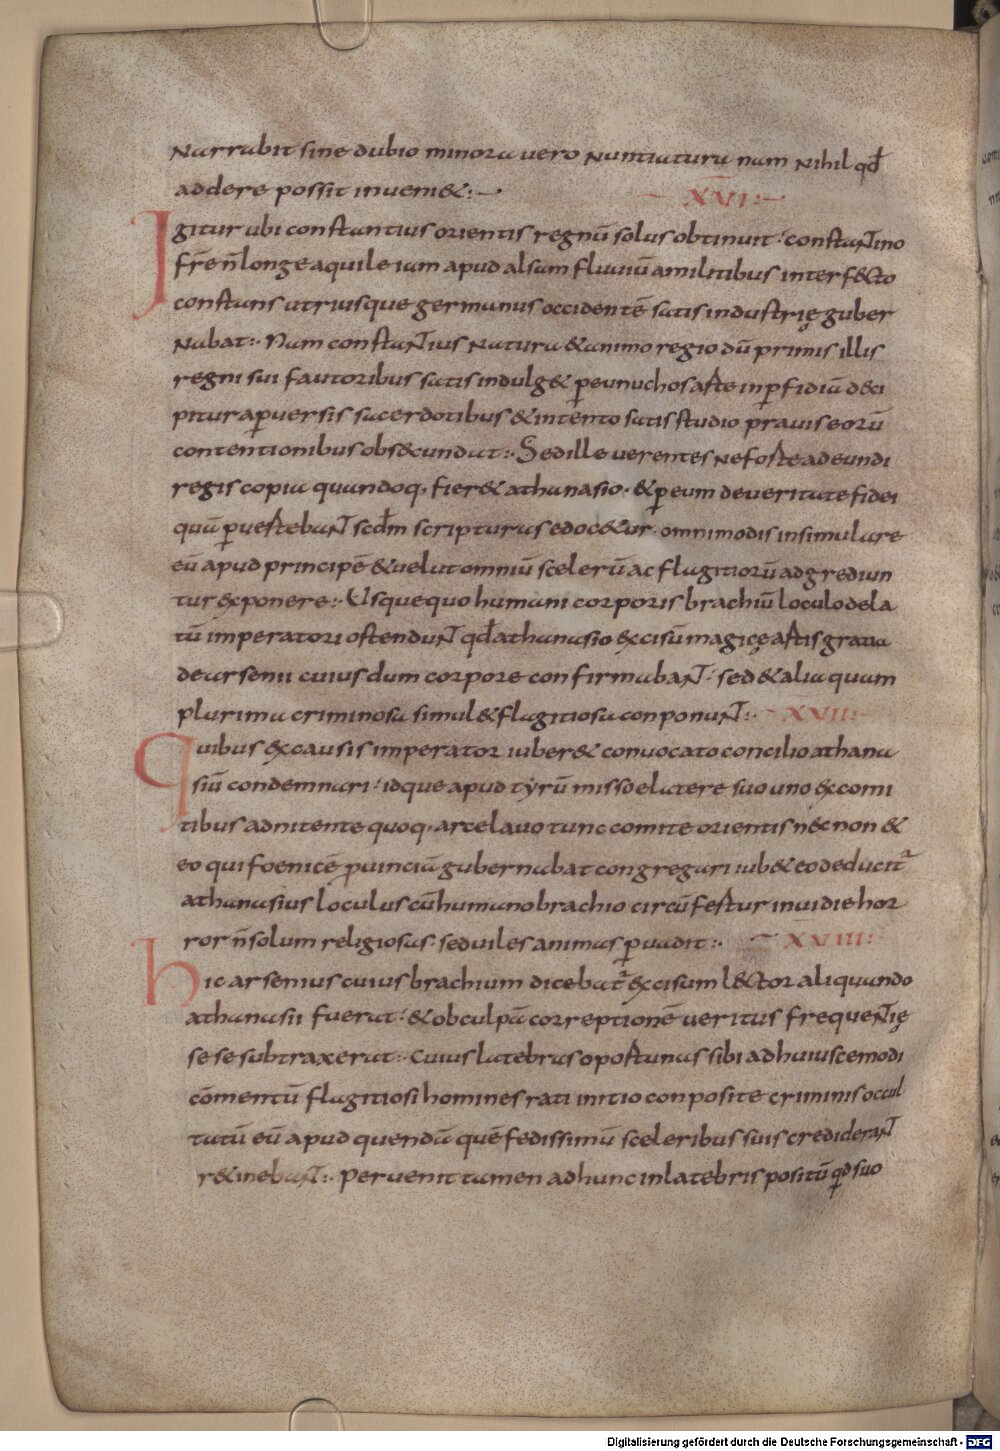 Narrabit sine dubio minora vero nuntiatura nam nihil qđ
addere possit inueni&:—
XVI:
Igitur ubi constantius orientis regnū solus obtinuit. constantino
fr̄e n̄ longe aquileiam apud alsam fluuiū a militibus interf&cto
constans utriusque germanus occidentē satis industrię guber
nabat:. Nam constantius natura & animo regio dū primis illis
regni sui fautoribus satis indulg& ꝑ eunuchos aste in ꝑfidiā deci
pitur a ꝑuersis sacerdotibus & intento satis studio prauis eorū
contentionibus obs&cundat:. Sed ille uerentes ne forte adeundi
regis copia quandoq, fier& athanasio. & ꝑ eum de ueritate fidei
quā ꝑuertebant scđm scripturas edoc&ur. omnimodis insimulare
eū apud principē & uelut omniū scelerū ac flagitiorū adgrediun
tur exponere:. Usquequo humani corporis brachiū loculo dela
tū imperatori ostendunt qđ athanasio excisū magicę artis gratia
de arsenii cuiusdam corpore confirmabant. sed & alia quam
plurima criminosa simul & flagitiosa conponunt:. XVII:
Quibus ex causis imperator iuber& conuocato concilio athana
siū condemnari. idque apud tyrū misso e latere suo uno ex comi
tibus adnitente quoq, arcelauo tunc comite orientis n&c non &
eo qui foenicē ꝓuinciā gubernabat congregari iub& eo deducit̄
athanasius loculus cū humano brachio circūfertur inuidie hor
ror n̄ solum religiosas sed uiles animas ꝑuadit:. XVIII:
hic arsenius cuius brachium dicebat̄ excisum l&ctor aliquando
athanasii fuerat. & ob culpā correptionē ueritus frequentię
sese subtraxerat:. Cuius latebras oportunas sibi ad huiuscemodi
cōmentū flagitiosi homines rati initio conposite criminis occul
tatū eū apud quendā quē fedissimū sceleribus suis crediderant
r&inebant:. Peruenit tamen ad hunc in latebris positū qđ suo
Digitalisierung gefördert durch die Deutsche Forschungsgemeinschaft - DFG